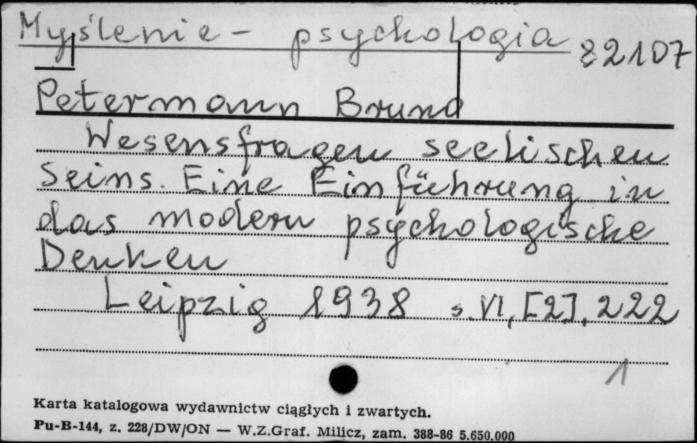 Myślenie - psychologia 82107
Petermann Bruno
Wesensfragen seelischen
Seins. Eine Einführung in
das modern psychologische
Denken
Leipzig 1938 s. VI, [2], 222
1
Karta katalogowa wydawnictw ciągłych i zwartych.
Pu-B-144, z. 228/DW/ON — W.Z.Graf. Milicz, zam. 388-86 5.650.000